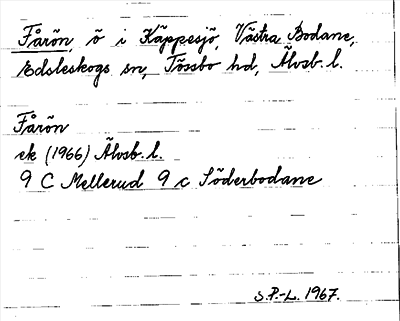 Fårön, ö i Käppesjö, Västra Bodane,
Edsleskogs sn, Tössbo hd, Älvsb. l.
Fårön
ek (1966) Älvsb. l.
9 C Mellerud 9 c Söderbodane
S.P.-L. 1967.